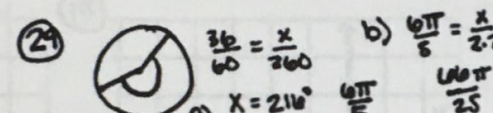 29
36/60 = x/360
x = 216°
b) 6π/5 = x/2.
6π/5
66π/25